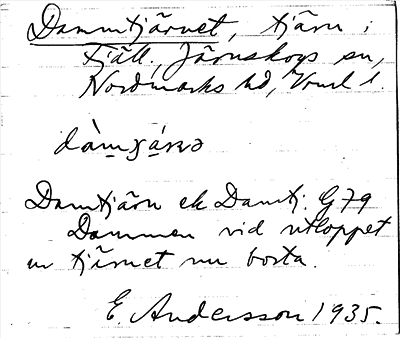 Dammtjärnet, tjärn i
Fjäll, Järnskogs sn,
Nordmarks hd, Vrml l.
dàm̱χä́ṟnə
Damtjärn ek Damtj. G 79
Dammen vid utloppet
ur tjärnet nu borta.
E. Andersson 1935.